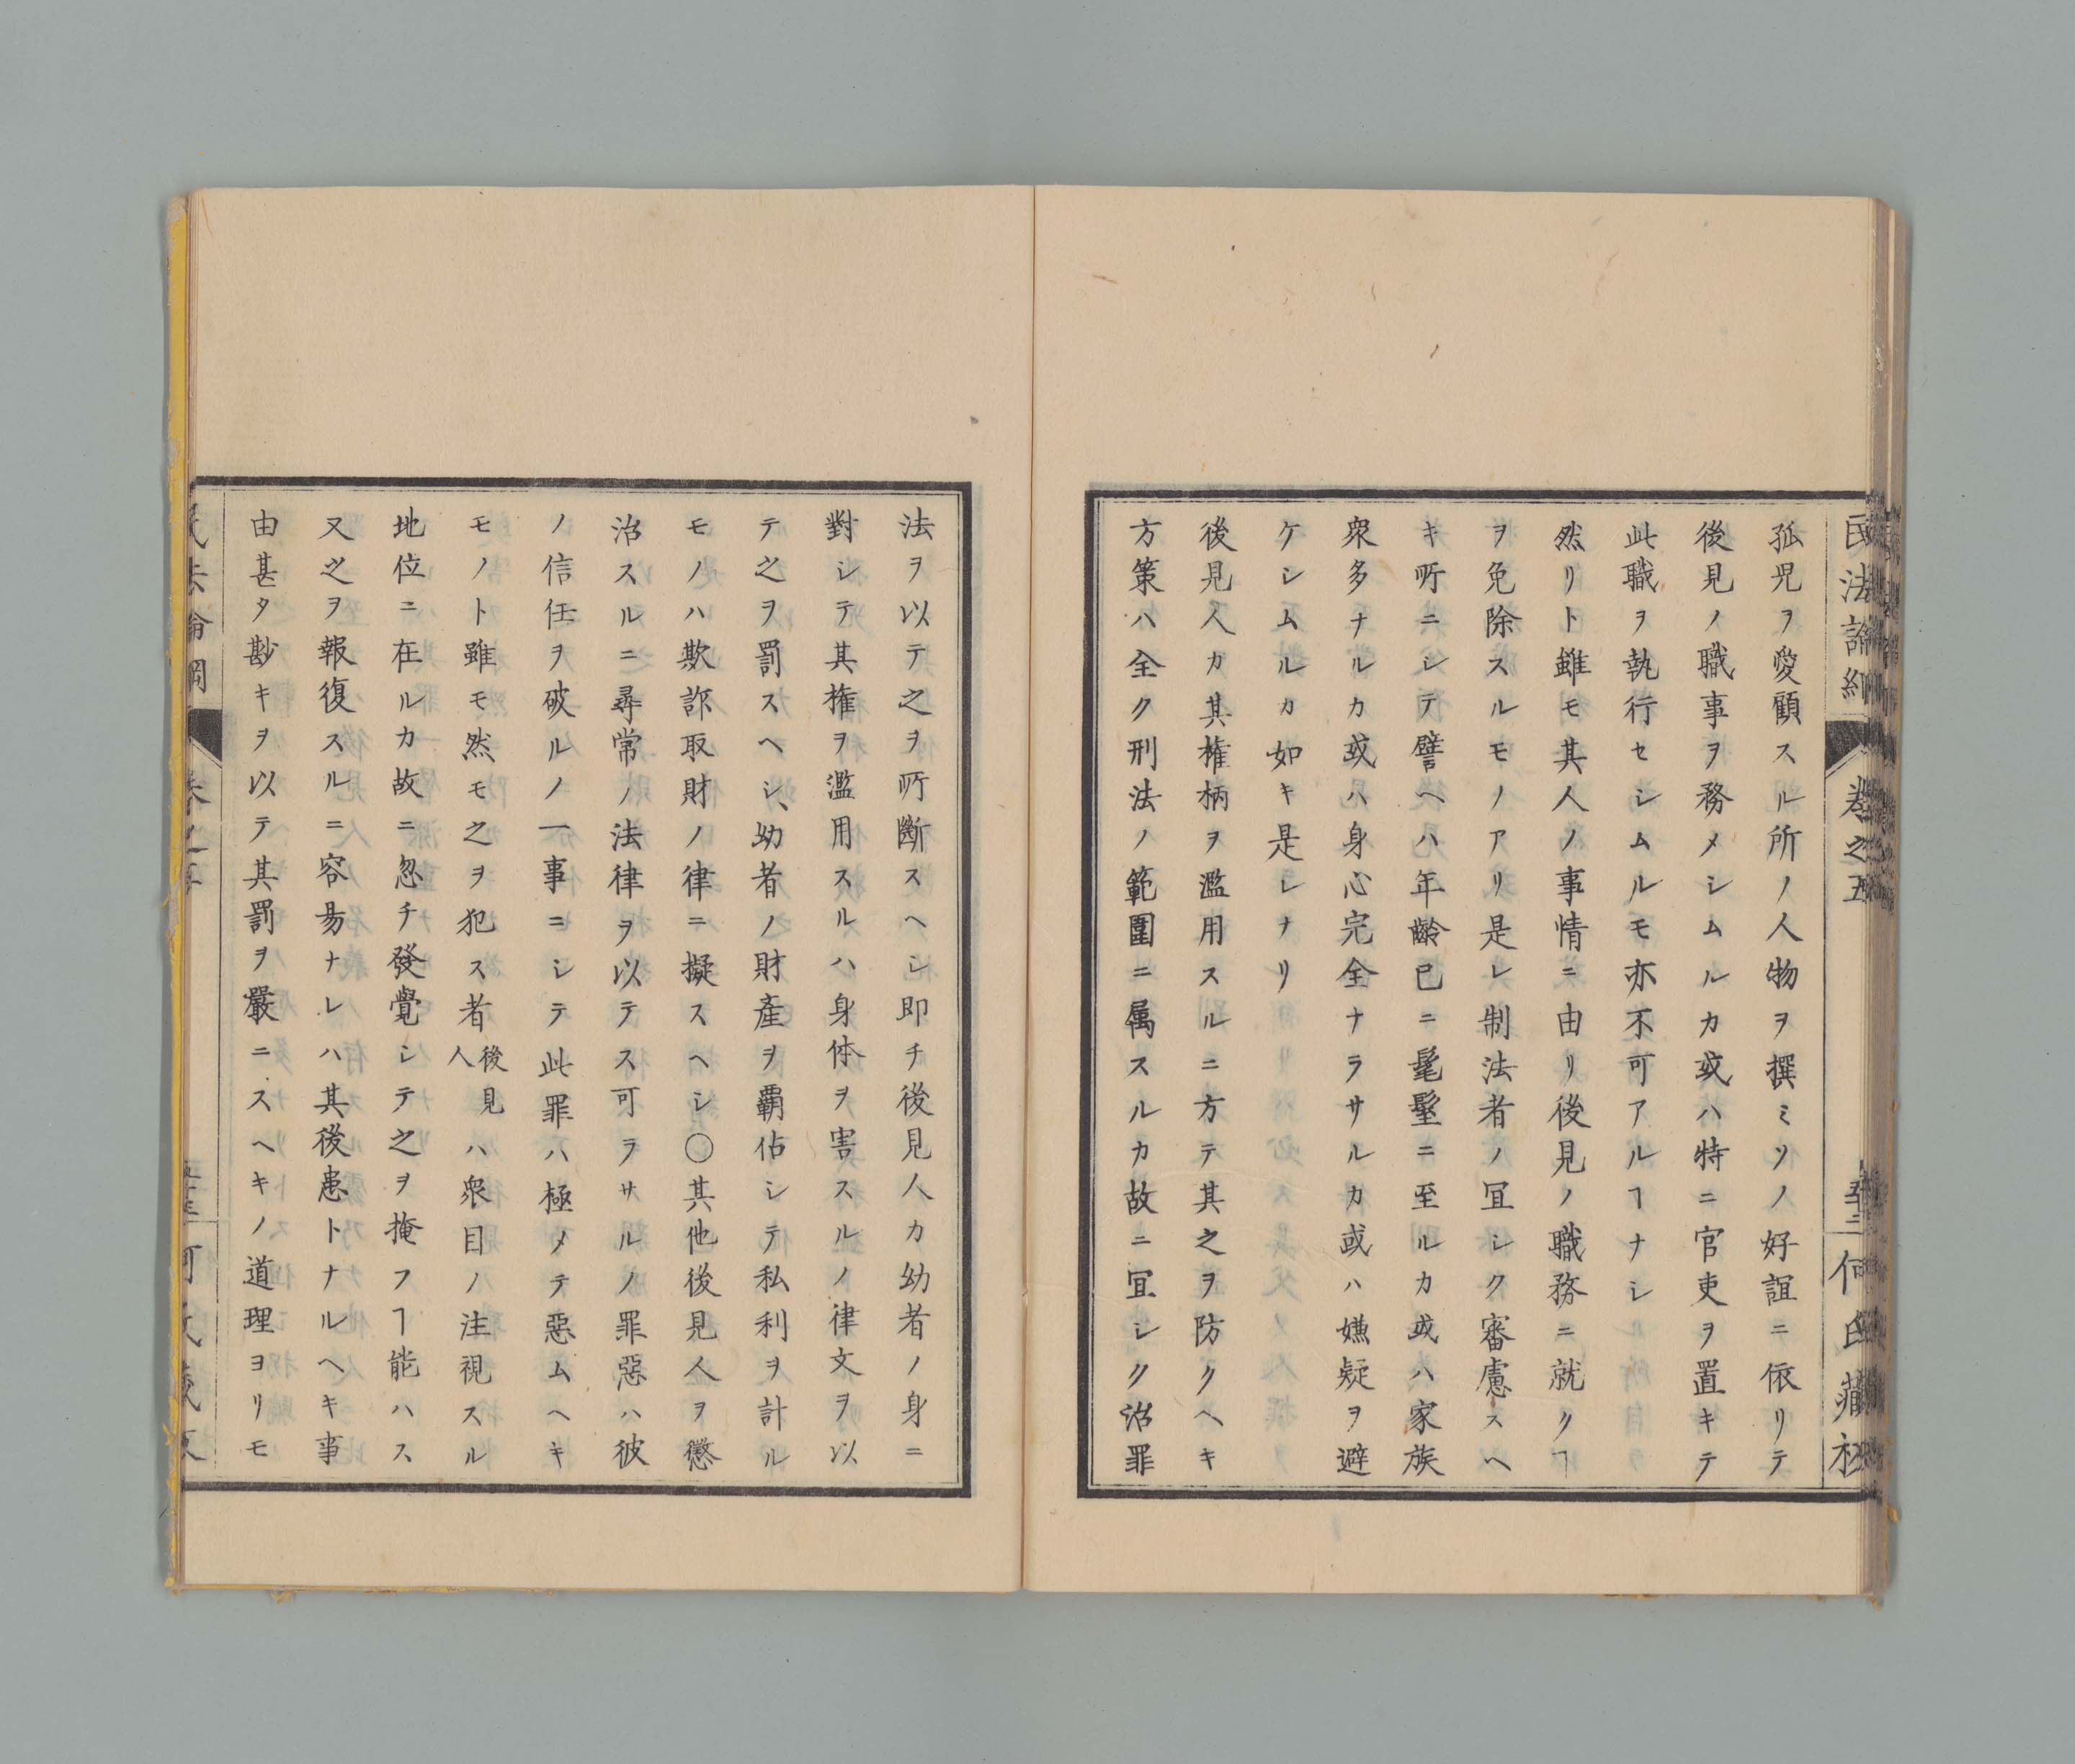 民法論綱
巻之五
孤児ヲ愛顧スル所ノ人物ヲ撰ミソノ好誼ニ依リテ
後見ノ職事ヲ務メシムルカ或ハ特ニ官吏ヲ置キテ
此職ヲ執行セシムルモ亦不可アルヿナシ
然リト雖モ其人ノ事情ニ由リ後見ノ職務ニ就クヿ
ヲ免除スルモノアリ是レ制法者ノ宜シク審慮スヘ
キ所ニシテ譬ヘハ年齢已ニ髦耋ニ至ルカ或ハ家族
衆多ナルカ或ハ身心完全ナラサルカ或ハ嫌疑ヲ避
ケシムルカ如キ是レナリ
後見人カ其権柄ヲ濫用スルニ方テ其之ヲ防クヘキ
方策ハ全ク刑法ノ範圍ニ属スルカ故ニ宜シク治罪
法ヲ以テ之ヲ所斷スヘシ即チ後見人カ幼者ノ身ニ
對シテ其権ヲ濫用スルハ身体ヲ害スルノ律文ヲ以
テ之ヲ罰スヘシ、幼者ノ財產ヲ覇佔シテ私利ヲ計ル
モノハ欺詐取財ノ律ニ擬スヘシ〇其他後見人ヲ懲
治スルニ尋常ノ法律ヲ以テス可ラサルノ罪惡ハ彼
ノ信任ヲ破ルノ一事ニシテ此罪ハ極メテ惡ムヘキ
モノト雖モ然モ之ヲ犯ス者後見人ハ衆目ノ注視スル
地位ニ在ルカ故ニ忽チ發覺シテ之ヲ掩フヿ能ハス
又之ヲ報復スルニ容昜ナレハ其後患トナルヘキ事
由甚タ尠キヲ以テ其罰ヲ嚴ニスヘキノ道理ヨリモ